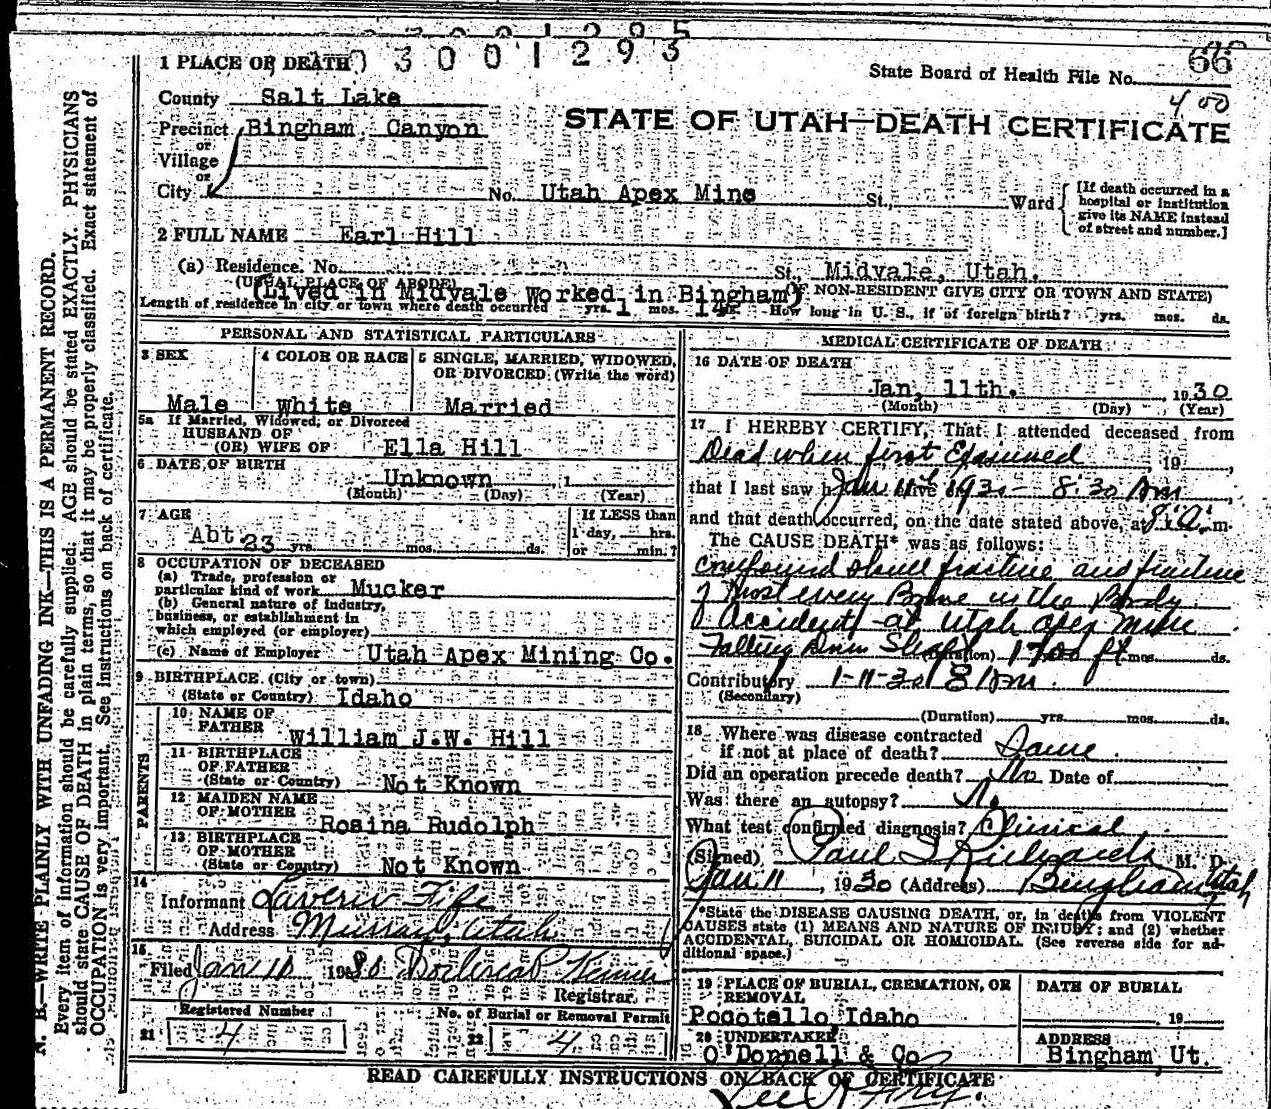 0 3 0 0 1 2 9 3
1 PLACE OF DEATH
State Board of Health File No. 66
4 00
County Salt Lake
STATE OF UTAH—DEATH CERTIFICATE
Precinct Bingham Canyon
or
Village
or
City No. Utah Apex Mine St., Ward
[If death occurred in a hospital or institution give its NAME instead of street and number.]
2 FULL NAME Earl Hill
(a) Residence. No. St., Midvale, Utah.
(USUAL PLACE OF ABODE) (Lived in Midvale Worked in Bingham) (IF NON-RESIDENT GIVE CITY OR TOWN AND STATE)
Length of residence in city or town where death occurred yrs. 1 mos. 14 ds. How long in U. S., if of foreign birth? yrs. mos. ds.
PERSONAL AND STATISTICAL PARTICULARS
3 SEX
Male
4 COLOR OR RACE
White
5 SINGLE, MARRIED, WIDOWED, OR DIVORCED (Write the word)
Married
5a If Married, Widowed, or Divorced
HUSBAND OF
(OR) WIFE OF Ella Hill
6 DATE OF BIRTH
Unknown 1
(Month) (Day) (Year)
7 AGE
Abt 23 yrs. mos. ds.
If LESS than
1 day, hrs.
or min.?
8 OCCUPATION OF DECEASED
(a) Trade, profession or
particular kind of work Mucker
(b) General nature of industry,
business, or establishment in
which employed (or employer)
(c) Name of Employer Utah Apex Mining Co.
9 BIRTHPLACE (City or town)
(State or Country) Idaho
PARENTS
10 NAME OF
FATHER William J.W. Hill
11 BIRTHPLACE
OF FATHER
(State or Country) Not Known
12 MAIDEN NAME
OF MOTHER Rosina Rudolph
13 BIRTHPLACE
OF MOTHER
(State or Country) Not Known
14
Informant Lavern Fife
Address Murray, Utah
15
Filed Jan 1930
Registrar.
Registered Number
21 4
No. of Burial or Removal Permit
22 4
MEDICAL CERTIFICATE OF DEATH
16 DATE OF DEATH
Jan, 11th. 1930
(Month) (Day) (Year)
17 I HEREBY CERTIFY, That I attended deceased from
Dead when first Examined, 19
that I last saw h alive on Jan 11th 1930 8:30 Am
and that death occurred, on the date stated above, at 8 A. m.
The CAUSE DEATH* was as follows:
compound skull fracture and fracture
of most every Bone in the Body
Accident at Utah Apex Mine
Falling Down (Duration) 1700 ft mos. ds.
Contributory 1-11-30 8 Am.
(Secondary)
(Duration) yrs. mos. ds.
18 Where was disease contracted
if not at place of death? Same
Did an operation precede death? No Date of
Was there an autopsy? No
What test confirmed diagnosis? Clinical
(Signed) Paul S Richards M. D.
Jan 11, 1930 (Address) Bingham, Utah
*State the DISEASE CAUSING DEATH, or, in deaths from VIOLENT
CAUSES state (1) MEANS AND NATURE OF INJURY; and (2) whether
ACCIDENTAL, SUICIDAL OR HOMICIDAL. (See reverse side for ad-
ditional space.)
19 PLACE OF BURIAL, CREMATION, OR
REMOVAL
Pocotello, Idaho
DATE OF BURIAL
19
20 UNDERTAKER
O'Donnell & Co
ADDRESS
Bingham, Ut.
READ CAREFULLY INSTRUCTIONS ON BACK OF CERTIFICATE
N. B.—WRITE PLAINLY WITH UNFADING INK—THIS IS A PERMANENT RECORD.
Every item of information should be carefully supplied. AGE should be stated EXACTLY. PHYSICIANS
should state CAUSE OF DEATH in plain terms, so that it may be properly classified. Exact statement of
OCCUPATION is very important. See instructions on back of certificate.